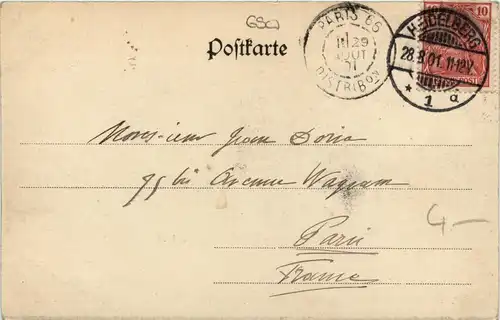 GSQ
Postkarte
PARIS 66
29
AOUT
01
DISTRIB ON
HEIDELBERG
28.8.01.11-12V.
* 1 a
10
Monsieur Jean Doria
75 bis Avenue Wagram
Paris
France
4-